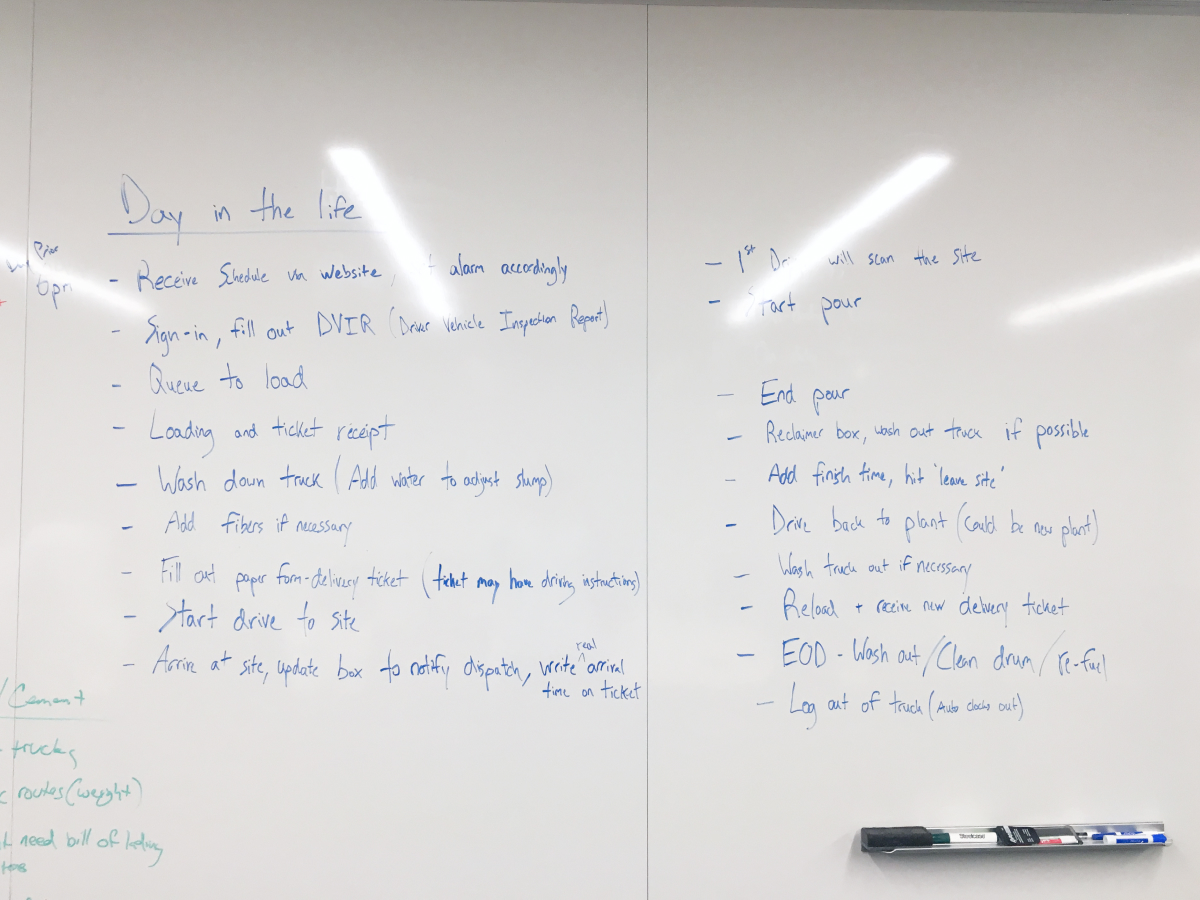 Day in the life
Prior
6pm
- Receive Schedule via website, alarm accordingly
- Sign-in, fill out DVIR (Driver Vehicle Inspection Report)
- Queue to load
- Loading and ticket receipt
- Wash down truck (Add water to adjust slump)
- Add fibers if necessary
- Fill out paper form-delivery ticket (ticket may have driving instructions)
- Start drive to site
- Arrive at site, update box to notify dispatch, write real arrival
time on ticket
- 1st will scan the site
- Start pour
- End pour
- Reclaimer box, wash out truck if possible
- Add finish time, hit 'leave site'
- Drive back to plant (Could be new plant)
- Wash truck out if necessary
- Reload + receive new delivery ticket
- EOD - Wash out/Clean drum/re-fuel
- Log out of truck (Auto clocks out)
/Cement
trucks
routes (weight)
need bill of lading